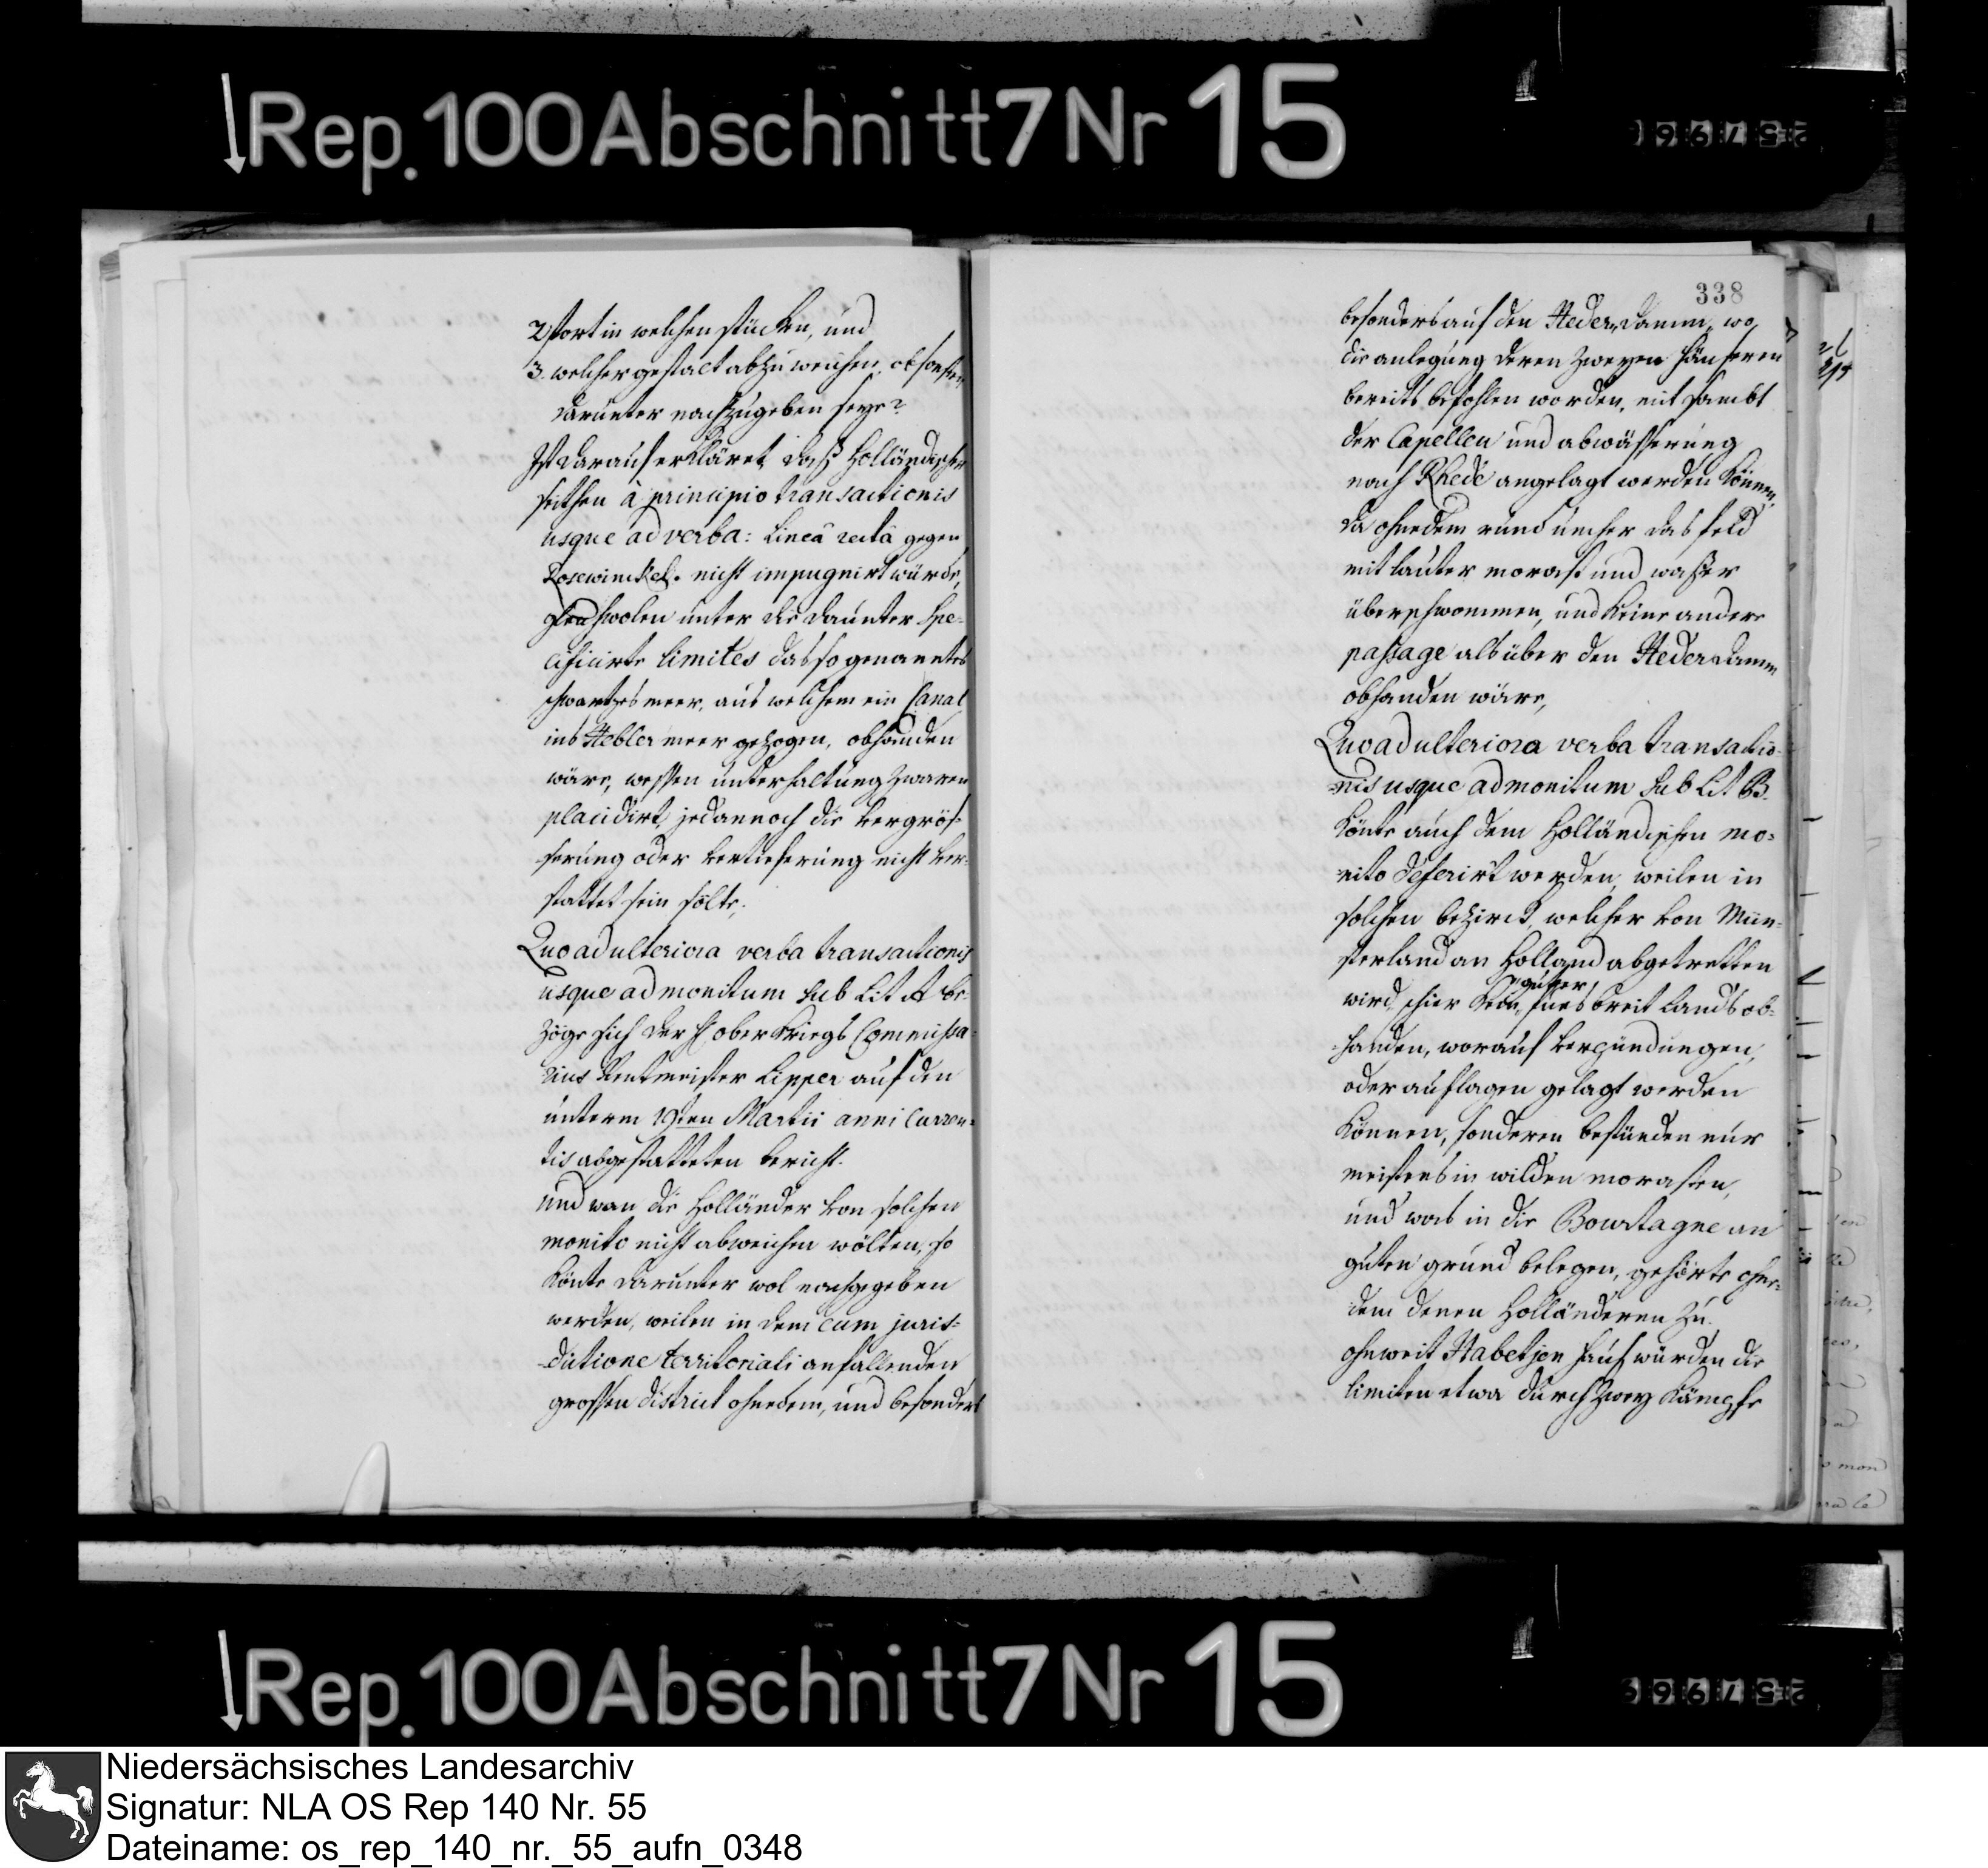 Rep. 100 Abschnitt 7 Nr 15
2. fort in welchen stücken, und
3. welcher gestalt abzuweichen, ob sonsten
darunter nachzugeben seye?
Ist darauf erkläret, daß Holländischer
seithen à principio transactionis
usque ad verba: Lineâ rectâ gegen
Rosewinckel. nicht impugnirt würde,
wolen unter die darunter spe-
cificirte limites das so genanntes
schwartzes meer, aus welchem ein Canal
ins Hebler meer gezogen, obhanden
wäre, wessen unterhaltung zwaren
placidirt, jedannoch die vergrös-
serung oder vertieferung nicht ver-
stattet sein solte;
Quoad ulteriora verba transactionis
usque ad monitum sub Lit A be-
zöge sich der H. ober Kriegs Commissa-
rius Rentmeister Lipper auf den
unterm 19ten Martii anni curren-
tis abgestatteten bericht.
und wan die Holländer von solchen
monito nicht abweichen wölten, so
könte darunter wol nachgegeben
werden, weilen in dem cum juris-
dictione territoriali anfallenden
grossen district ohnedem, und besonders
338
besonders auf den Heder damm, wo
die anlegung deren zweyen häuseren
bereits befohlen worden, mit sambt
der Capellen und abwässerung
nach Rhede angelagt werden können,
da ohnedem rund umher das feld
mit lauter morast und wasser
überschwommen, und keine andere
passage als über den Heder damm
obhanden wäre,
Quoad ulteriora verba transactio-
nis usque ad monitum sub Lit B.
könte auch dem Holländischen mo-
nito deferirt werden, weilen in
solchen bezirck, welcher von Mün-
sterland an Holland abgetretten
guter
wird, schier kein fues breit lands ob-
handen, worauf
oder auflagen gelagt werden
können, sonderen bestünden nur
meistens in wilden morasten,
und was in die Bourtagne an
guten grund belegen, gehörte ohne-
dem denen Holländeren zu.
ohnweit Habetjen haus würden die
limiten etwa durch zwey Kämpfe
Rep. 100 Abschnitt 7 Nr 15
Niedersächsisches Landesarchiv
Signatur: NLA OS Rep 140 Nr. 55
Dateiname: os_rep_140_nr._55_aufn_0348